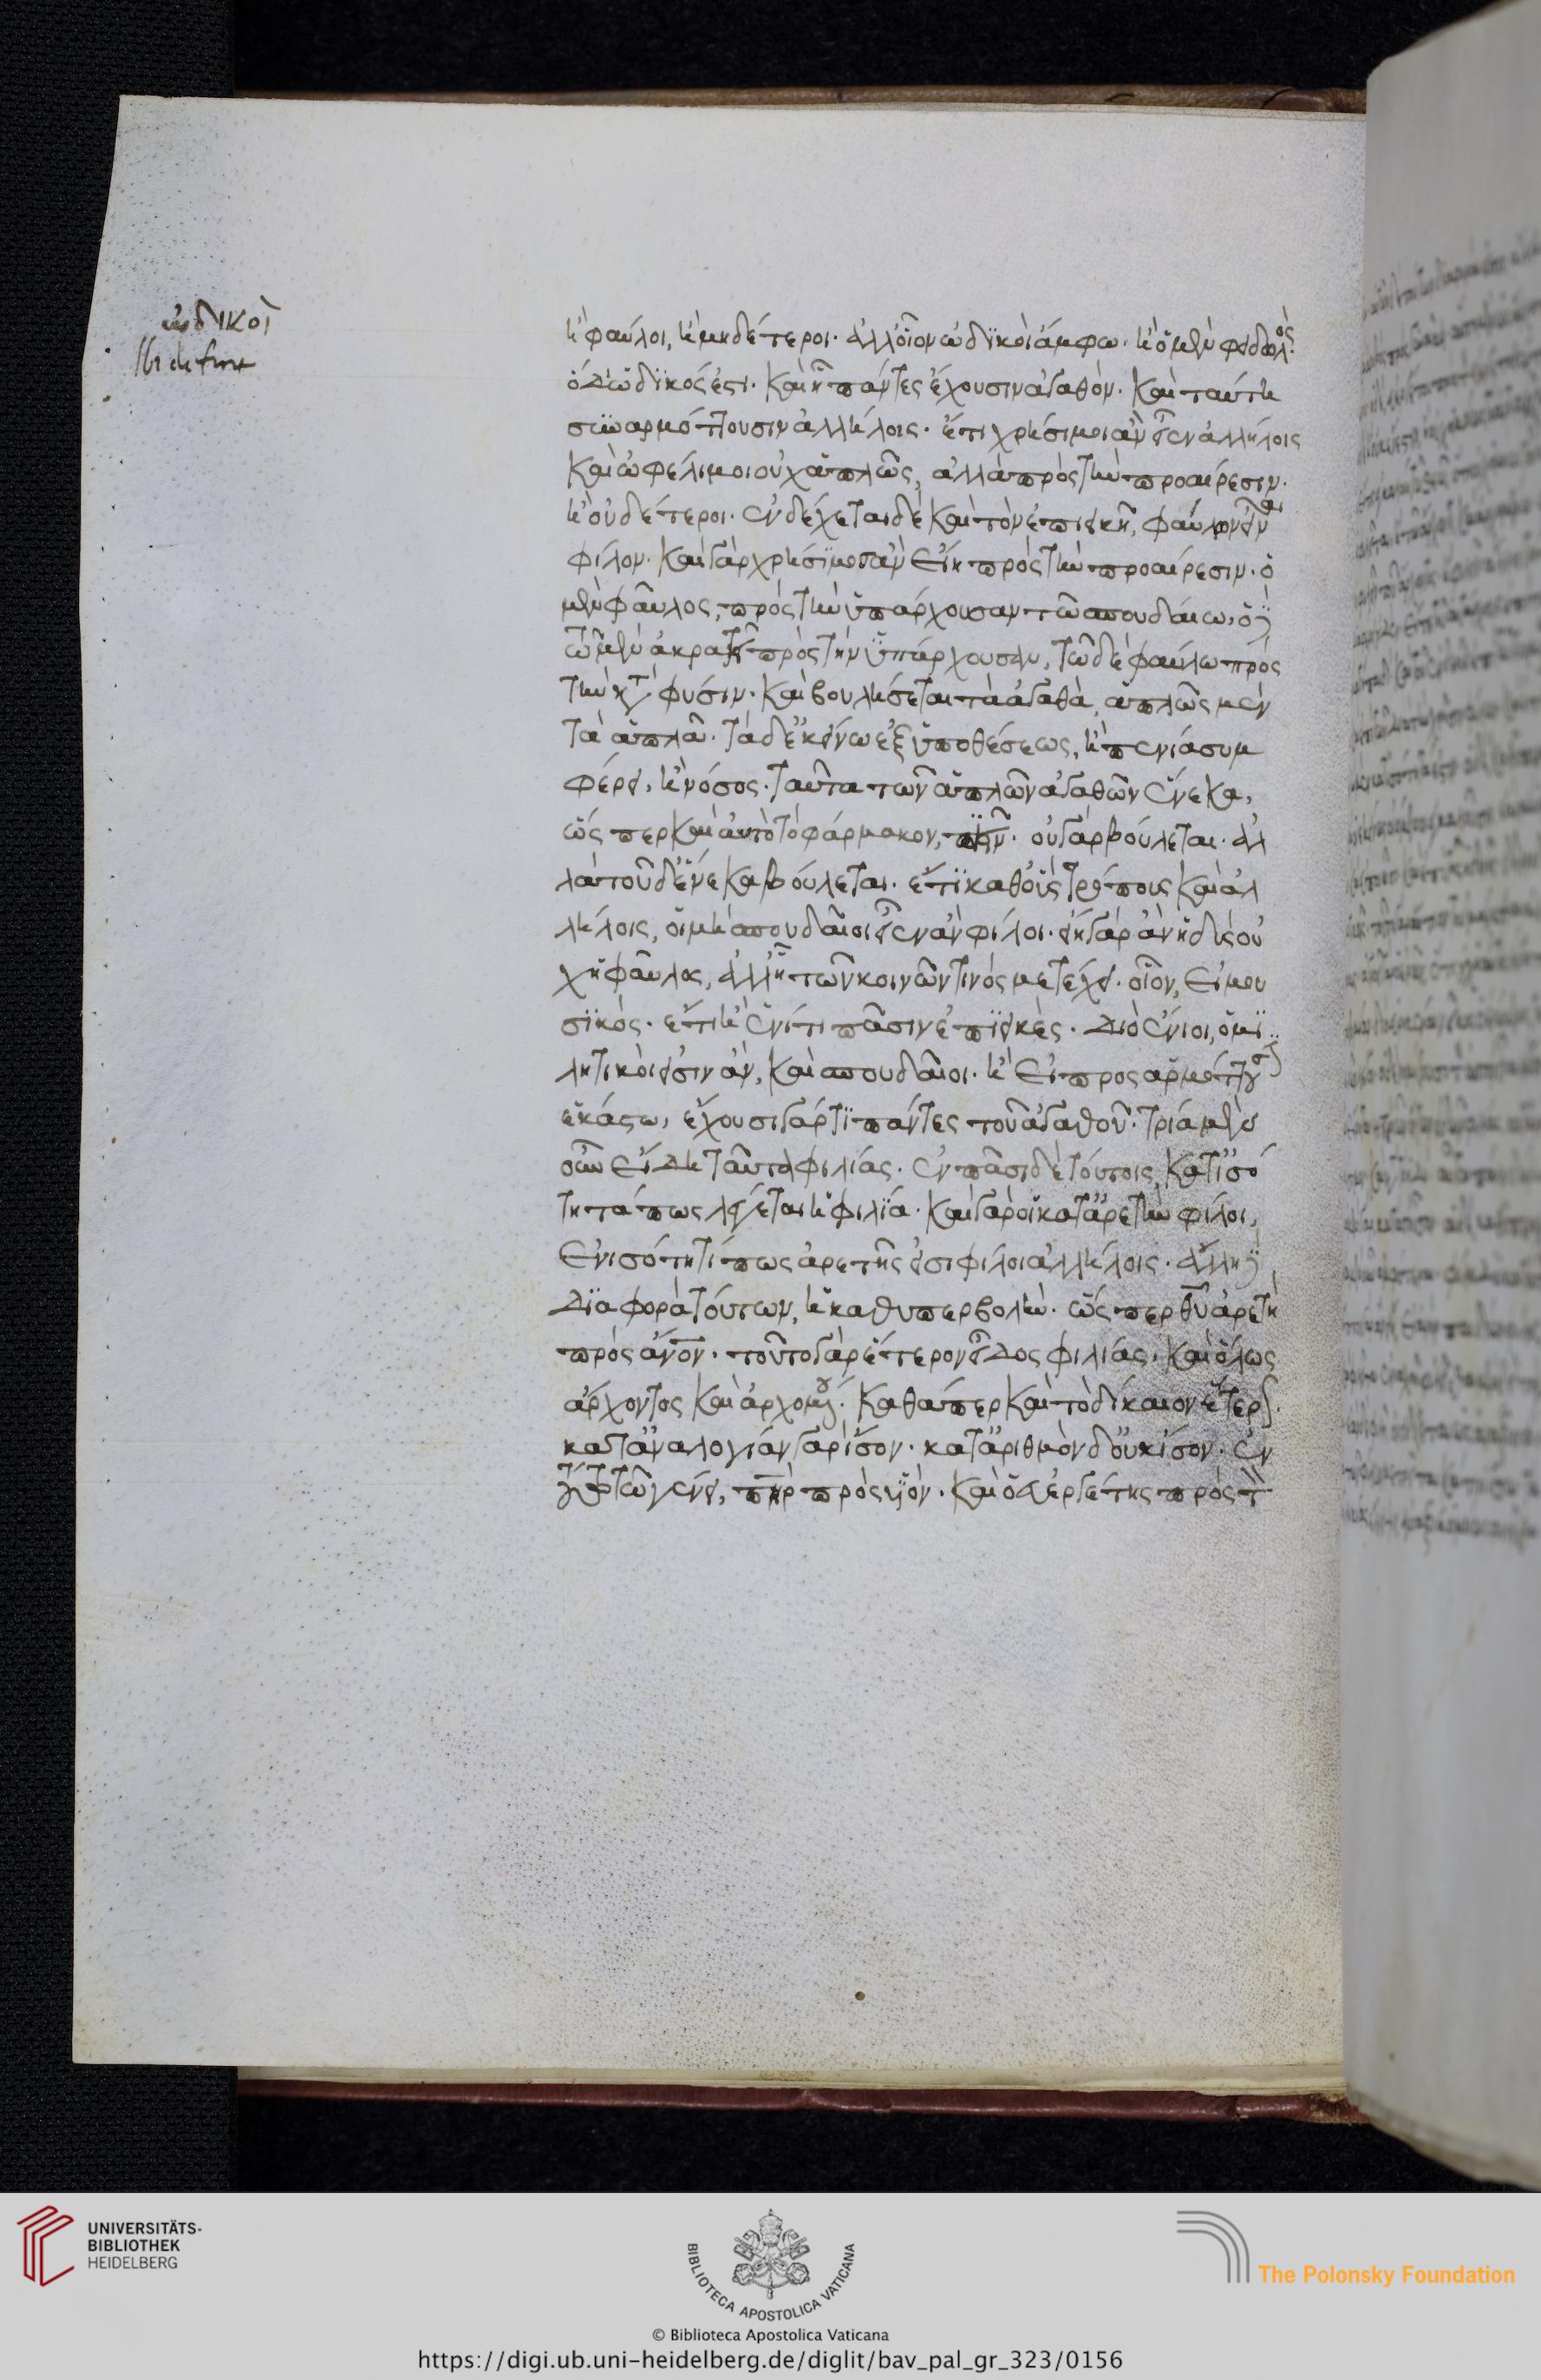 ᾠδικοὶ
ἢ φαύλοι, ἢ μηδέτεροι. ἀλλ' οἷον ᾠδικοὶ ἄμφω. ἢ ὁ μὲν φειδωλός.
ὁ δ' ᾠδικός ἐστι. καὶ ἧ πάντες ἔχουσιν ἀγαθόν. καὶ ταύτη
συναρμόττουσιν ἀλλήλοις. ἔτι χρήσιμοι ἂν εἶεν ἀλλήλοις
καὶ ὠφέλιμοι οὐχ ἁπλῶς, ἀλλὰ πρὸς τὴν προαίρεσιν.
ἢ οὐδέτεροι. ἐνδέχεται δὲ καὶ τὸν ἐπιεικῆ, φαύλον εἶναι
φίλον. καὶ γὰρ χρήσιμος ἂν εἴη πρὸς τὴν προαίρεσιν. ὁ
μὲν φαῦλος, πρὸς τὴν ὑπάρχουσαν τῶ σπουδαίω, ὁ δὲ
τῶ μὲν ἀκρατεῖ πρὸς τὴν ὑπάρχουσαν, τῶ δὲ φαύλω πρὸς
τὴν κατὰ φύσιν. καὶ βουλήσεται τὰ ἀγαθὰ, ἁπλῶς μὲν
τὰ ἁπλᾶ. τὰ δ' ἐκείνω ἐξ ὑποθέσεως, ἢ πενία συμ
φέρει, ἢ νόσος. ταῦτα τῶν ἁπλῶν ἀγαθῶν ἕνεκα,
ὥς περ καὶ αὐτὸ τὸ φάρμακον, πιεῖν. οὐ γὰρ βούλεται. ἀλ
λὰ τοῦδ' ἕνεκα βούλεται. ἔτι καθ' οὓς τρόπους καὶ ἀλ
λήλοις, οἱ μὴ σπουδαῖοι εἶεν ἂν φίλοι. εἴη γὰρ ἂν ἡδὺς οὐ
χ ἧ φαῦλος, ἀλλ' ἧ τῶν κοινῶν τινὸς μετέχει. οἷον, εἰ μου
σικός. ἔτι ἧ ἔνι τι πᾶσιν ἐπιεικές. διὸ ἔνιοι, ὁμι
λητικοὶ εἶσιν ἂν, καὶ σπουδαῖοι. ἢ εἰ προσαρμόττουσιν
ἑκάστω, ἔχουσι γάρ τι πάντες τοῦ ἀγαθοῦ. τρία μὲν
οὖν εἴδη ταῦτα φιλίας. ἐν πᾶσι δὲ τούτοις, κατ' ἰσό
τητά πως λέγεται ἡ φιλία. καὶ γὰρ οἱ κατ' ἀρετὴν φίλοι,
ἐν ἰσότητί πως ἀρετῆς εἰσι φίλοι ἀλλήλοις. ἄλλη δὲ
διαφορὰ τούτων, ἡ καθ' ὑπερβολὴν. ὥς περ θεοῦ ἀρετὴ
πρὸς ἄνον. τοῦτο γὰρ ἕτερον εἶδος φιλίας. καὶ ὅλως
ἄρχοντος καὶ ἀρχομένου. καθάπερ καὶ τὸ δίκαιον ἕτερον.
κατ' ἀναλογίαν γὰρ ἴσον. κατ' ἀριθμὸν δ' οὐκ ἴσον. ἐν
τούτω τῶ γένει, πηρ πρὸς υἱόν. καὶ ὁ εὐεργέτης πρὸς τὸν